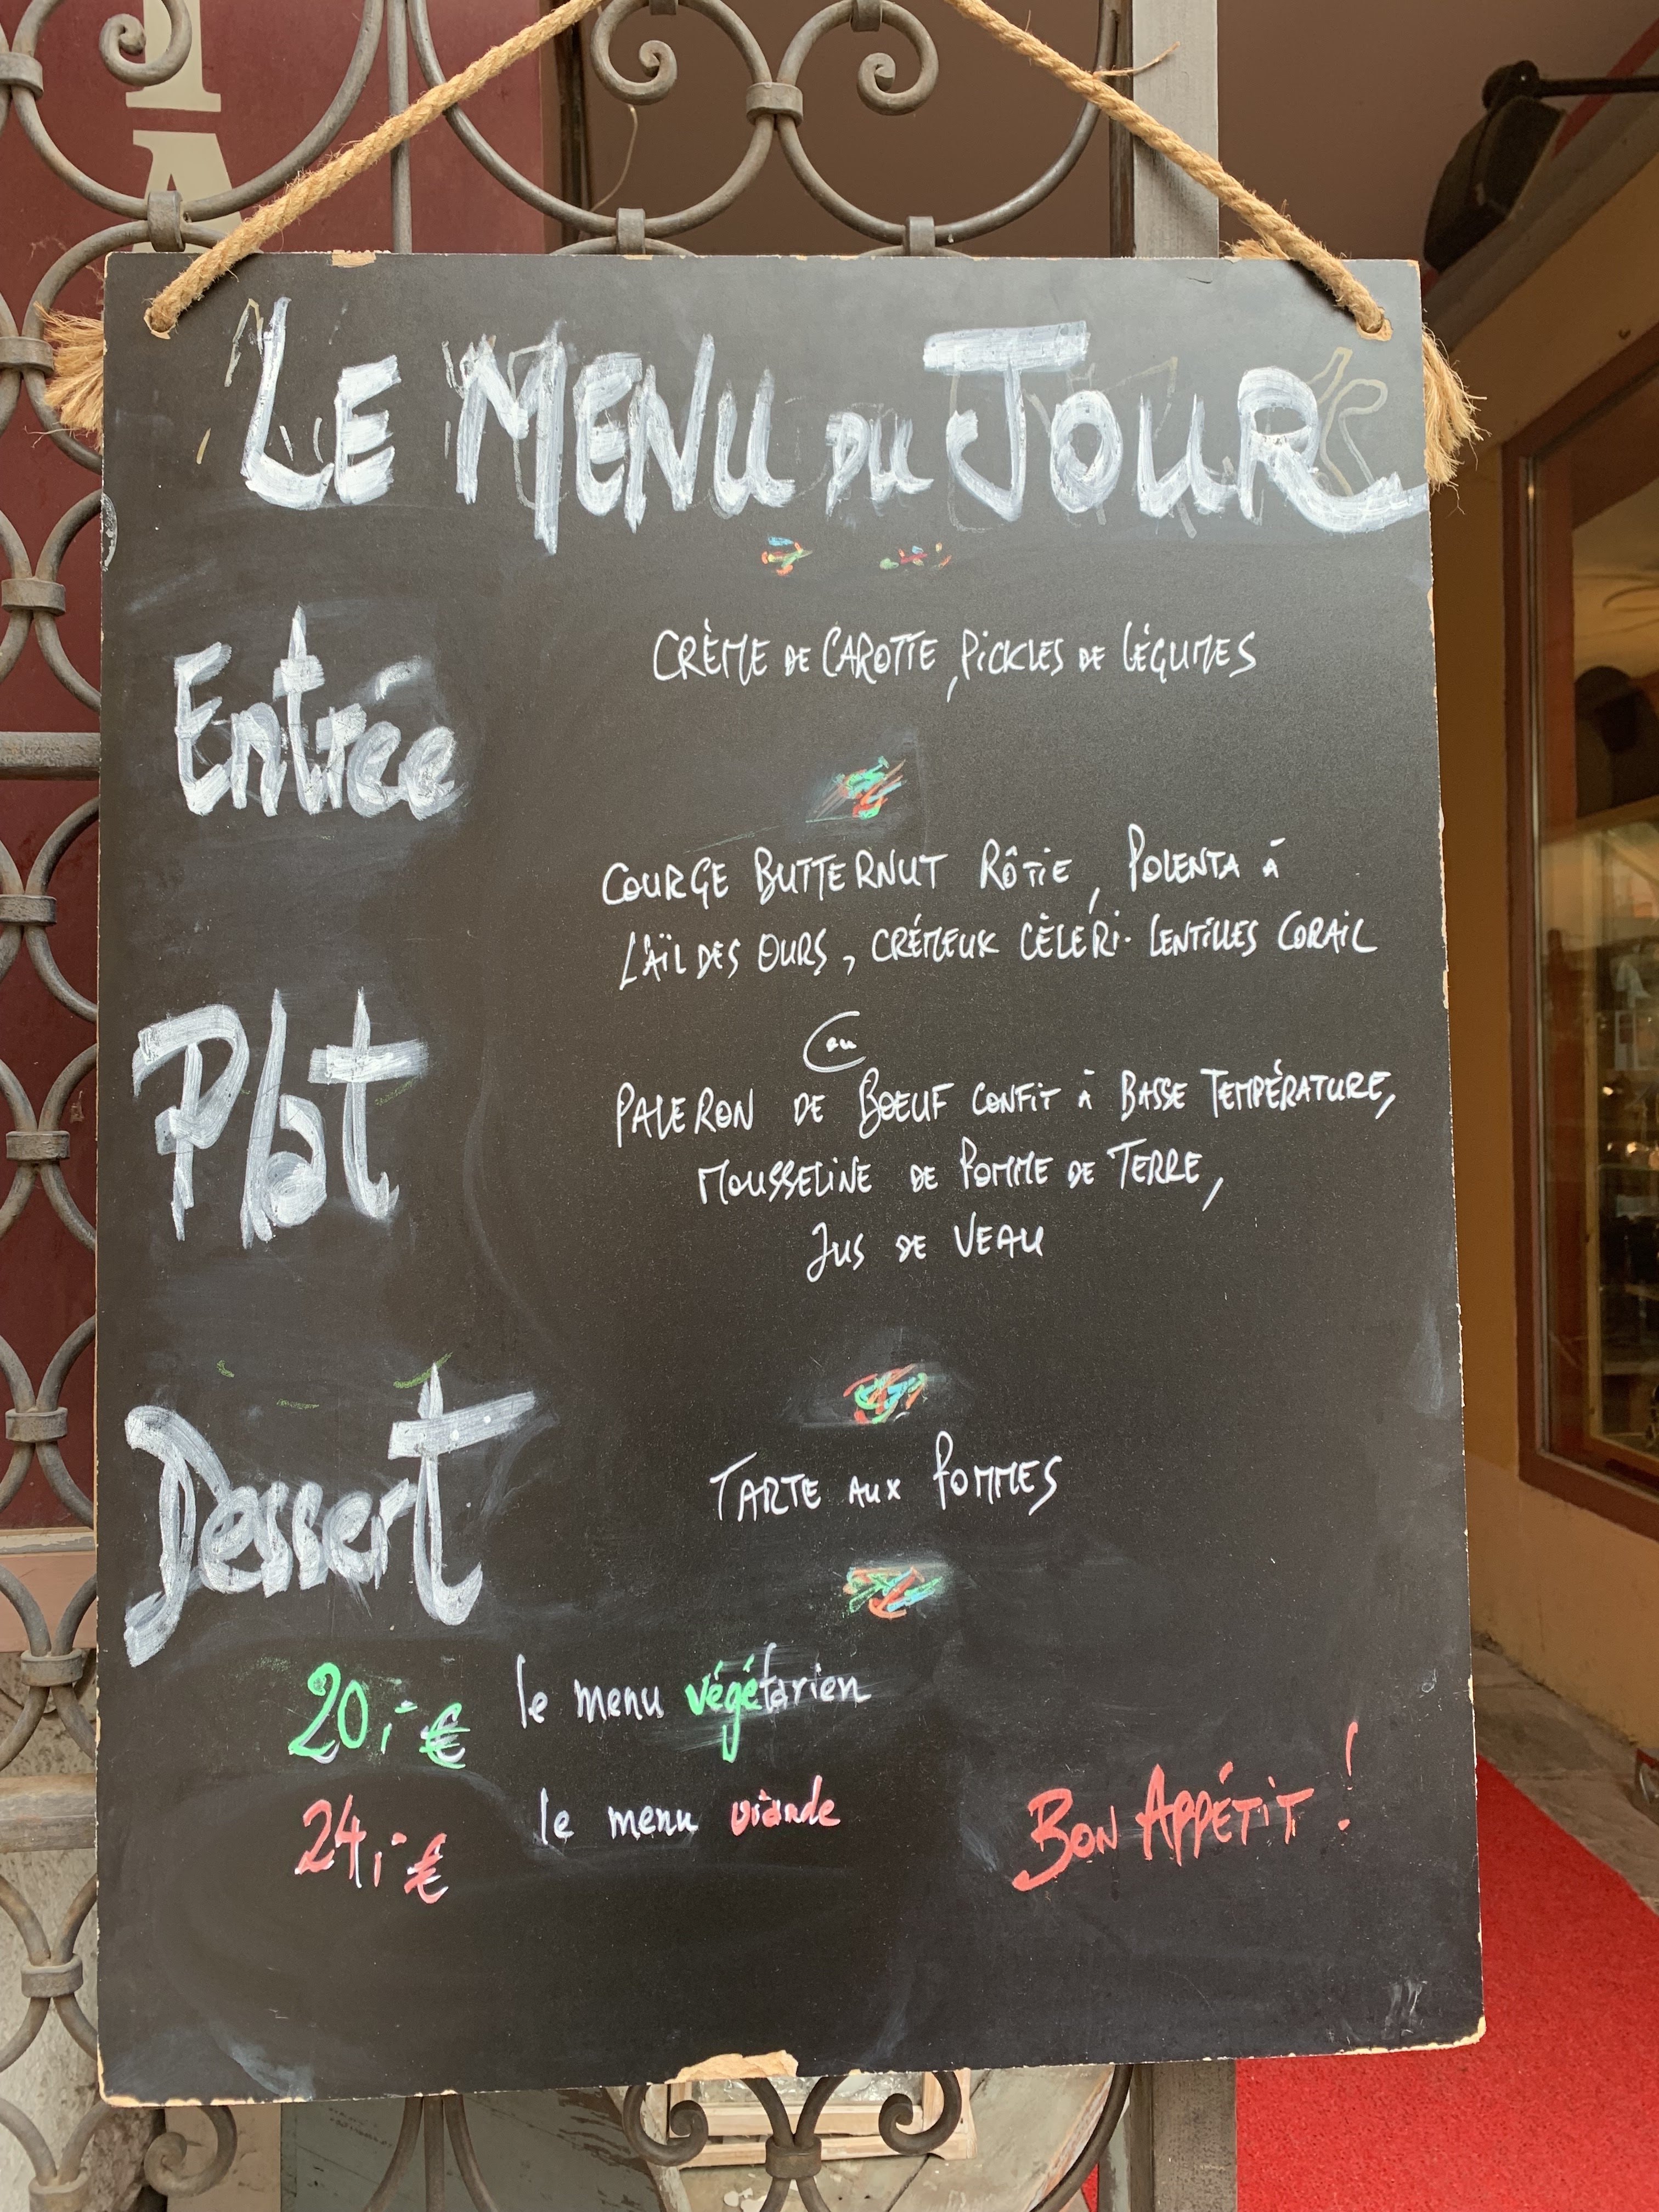 LE MENU DU JOUR
Entrée
CRÈME DE CAROTTE, PICKLES DE LÉGUMES
Plat
COURGE BUTTERNUT RÔTIE, POLENTA À
L'AÏL DES OURS, CRÉMEUX CÈLERI- LENTILLES CORAIL
ou
PALERON DE BOEUF CONFIT À BASSE TEMPÉRATURE,
MOUSSELINE DE POMME DE TERRE,
JUS DE VEAU
Dessert
TARTE AUX POMMES
20,-€ le menu végétarien
24,-€ le menu viande
BON APPÉTIT !